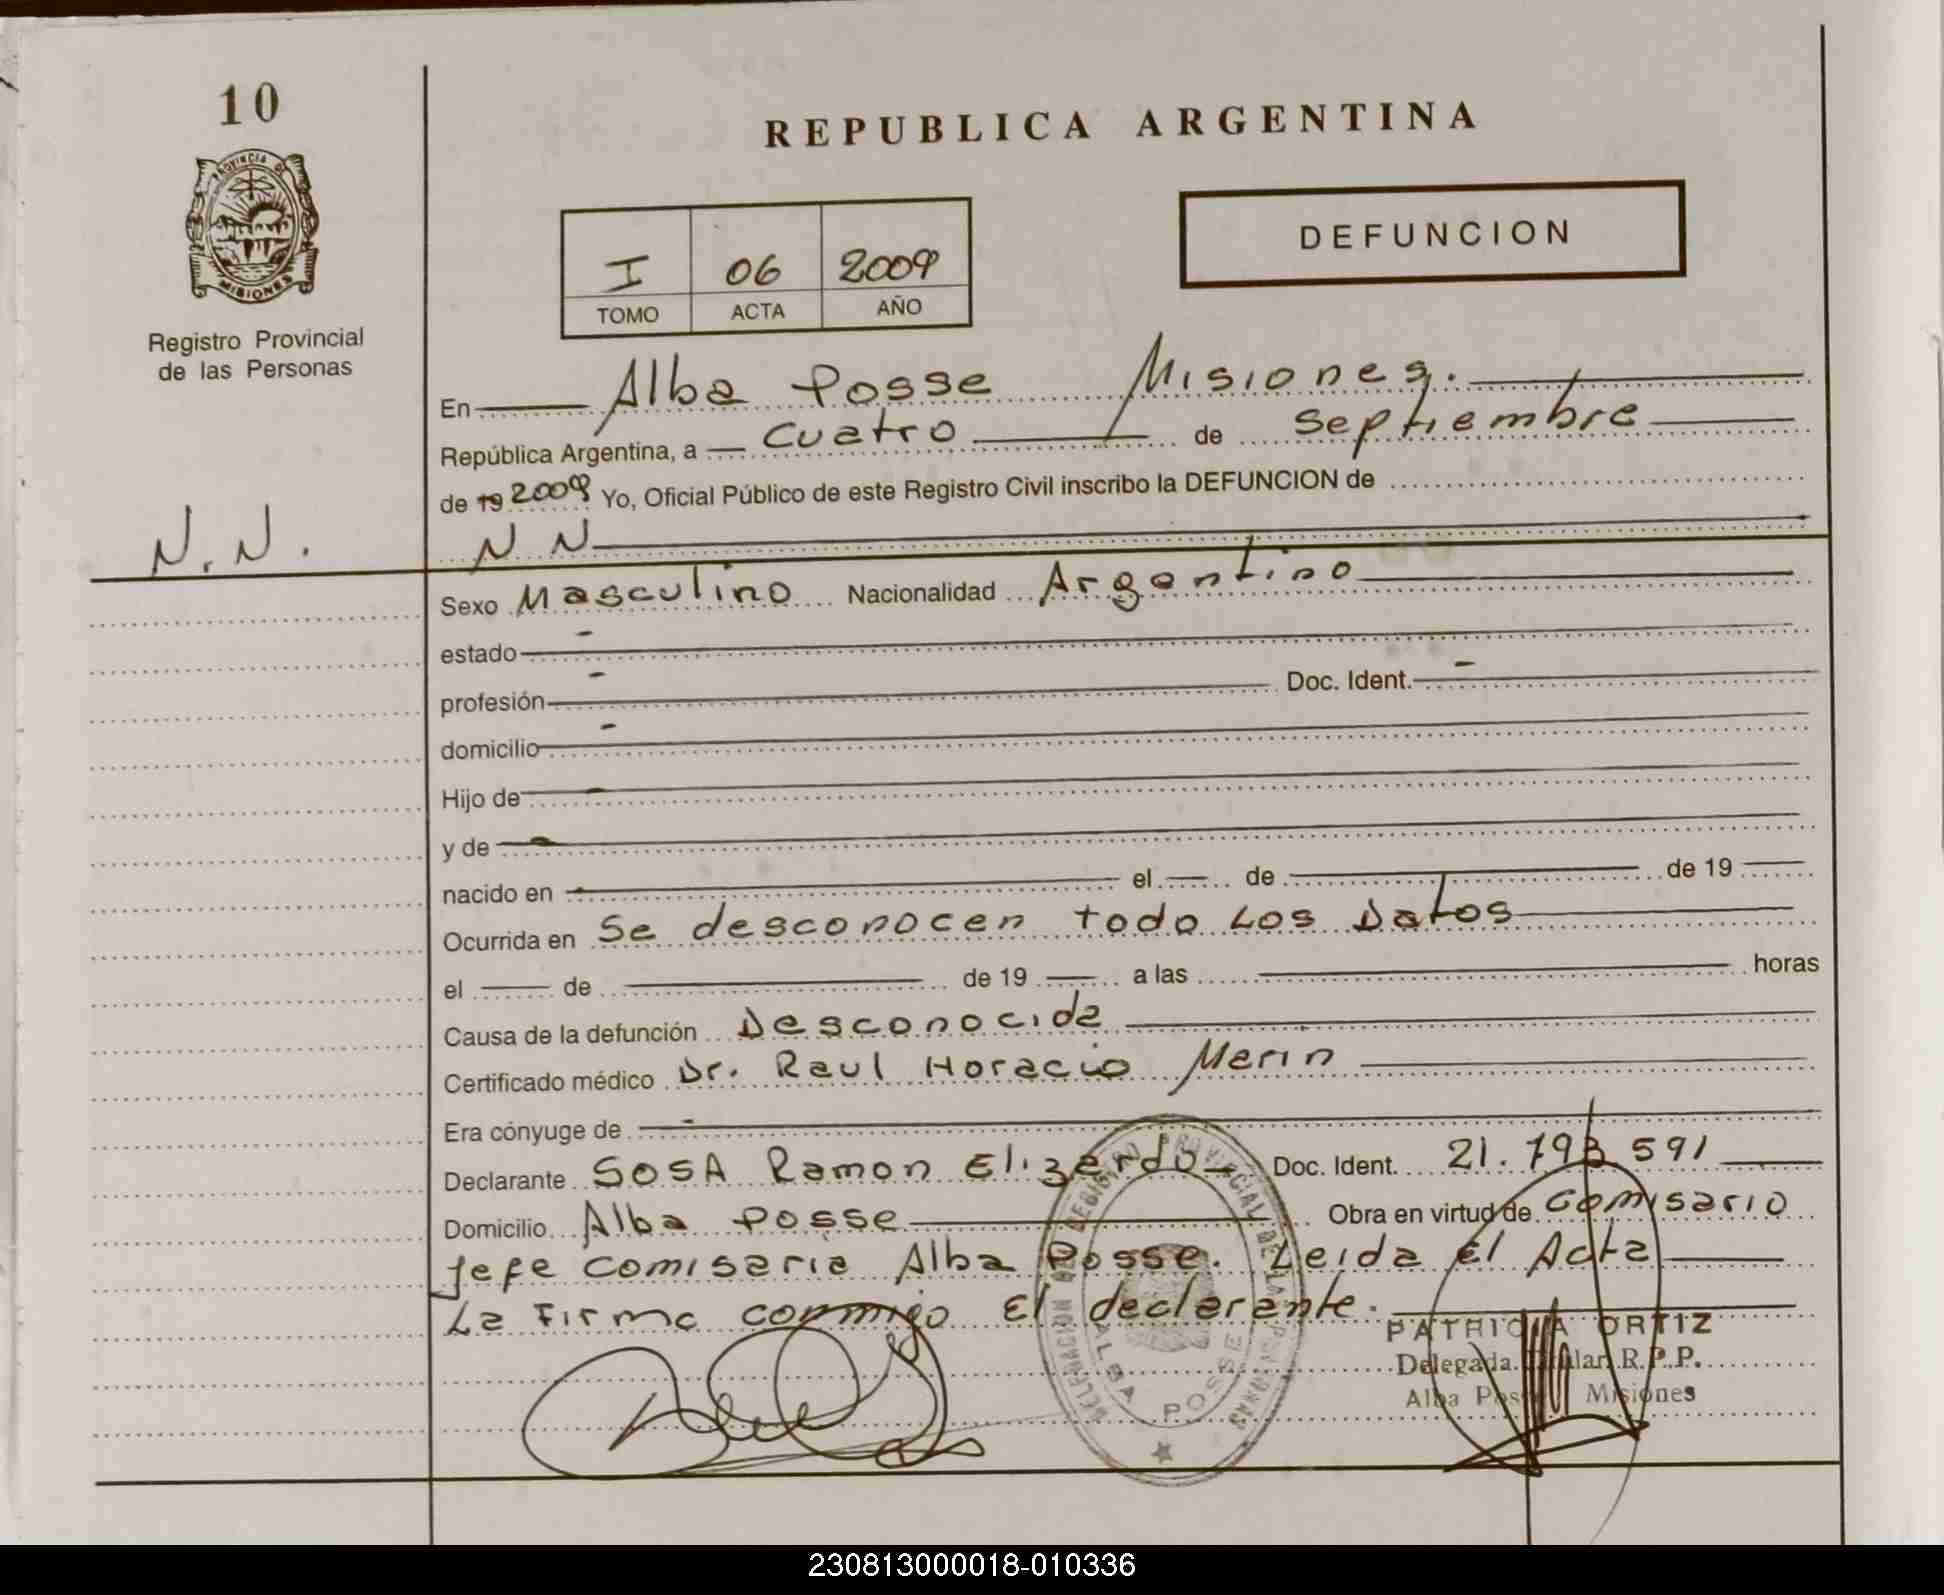 10
REPUBLICA ARGENTINA
PROVINCIA DE
MISIONES
DEFUNCION
I 06 2009
TOMO ACTA AÑO
Registro Provincial
de las Personas
En Alba Posse Misiones.
República Argentina, a cuatro de septiembre
de 19 2009 Yo, Oficial Público de este Registro Civil inscribo la DEFUNCION de
N.N. N N
Sexo Masculino Nacionalidad Argentino
estado -
profesión - Doc. Ident. -
domicilio -
Hijo de -
y de -
nacido en el de de 19
Ocurrida en Se desconocen todo Los Datos
el de de 19 a las horas
Causa de la defunción Desconocida
Certificado médico Dr. Raul Horacio Merin
Era cónyuge de -
Declarante SOSA Ramon Elizardo Doc. Ident. 21.793 591
Domicilio Alba Posse Obra en virtud de Comisario
Jefe comisaria Alba Posse. Leida el Acta
La Firma conmigo El declarante.
PATRICIA ORTIZ
Delegada Titular R.P.P.
Alba Posse Misiones
DELEGACION DEL REGISTRO PROVINCIAL DE LAS PERSONAS
ALBA POSSE
230813000018-010336